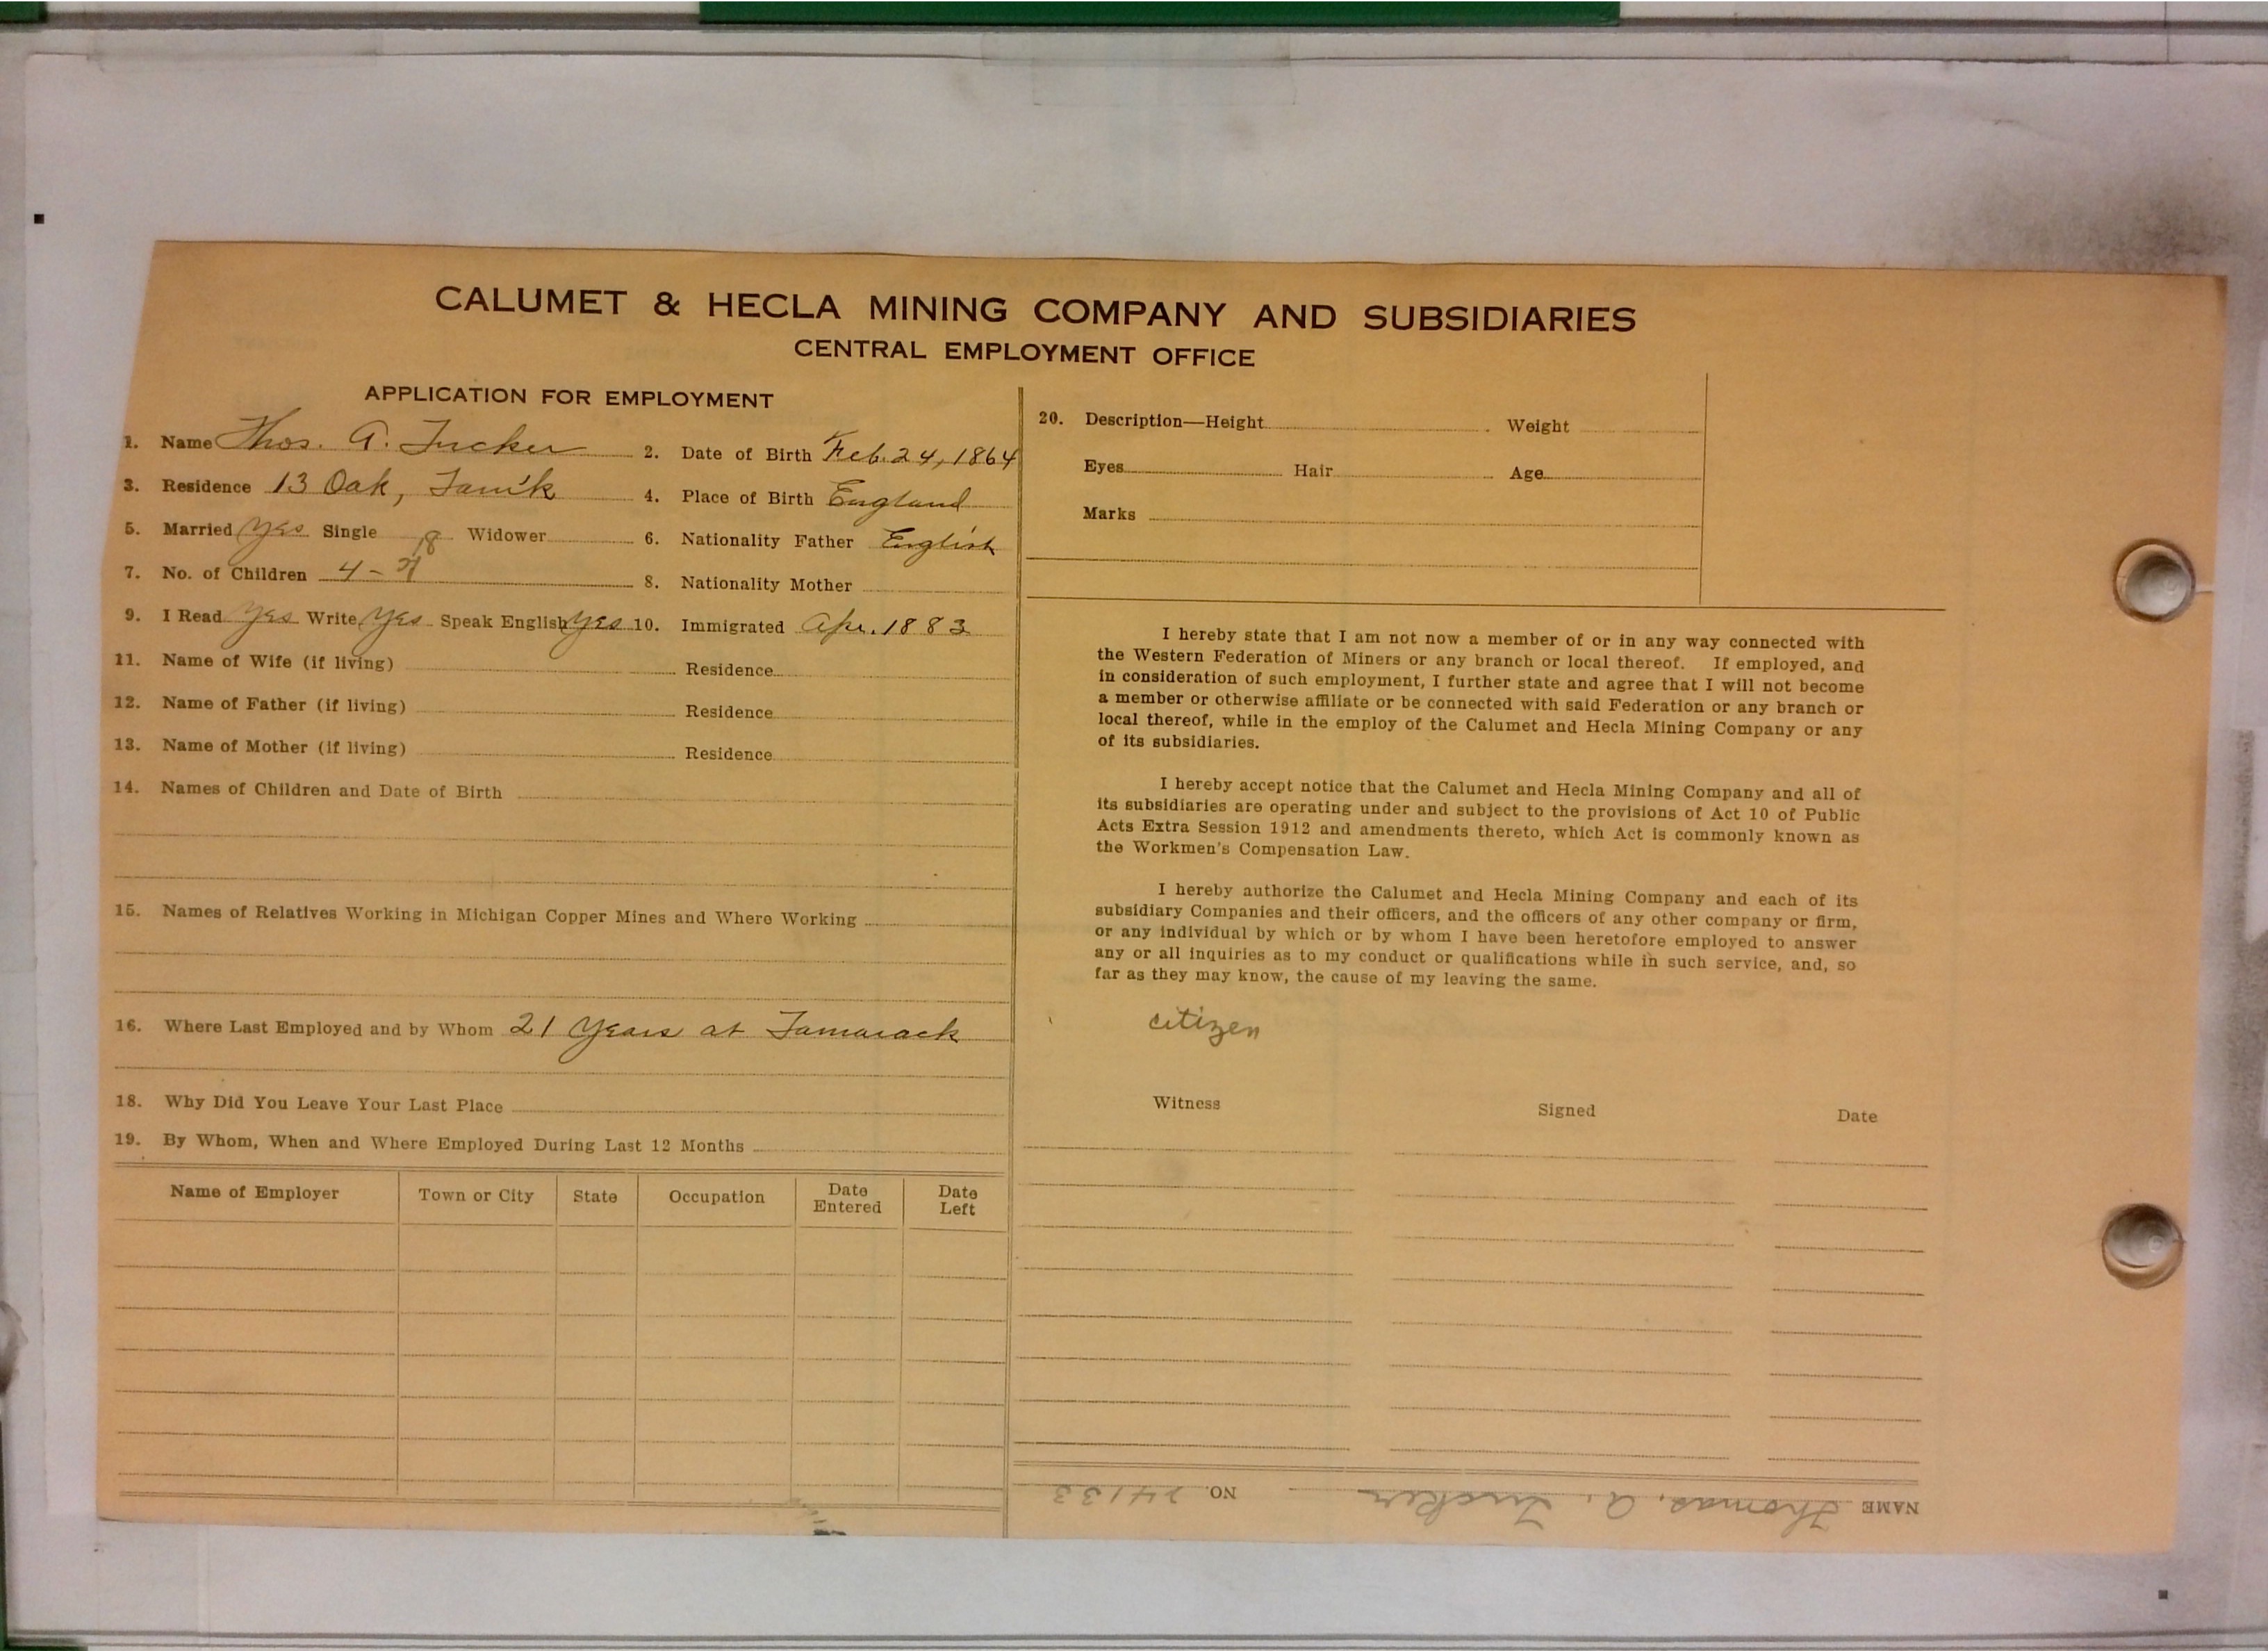 CALUMET & HECLA MINING COMPANY AND SUBSIDIARIES
CENTRAL EMPLOYMENT OFFICE
APPLICATION FOR EMPLOYMENT
1. Name Thos. A. Tucker 2. Date of Birth Feb. 24, 1864
3. Residence 13 Oak, Tam'k 4. Place of Birth England
5. Married Yes Single Widower 6. Nationality Father English
7. No. of Children 4 - 8. Nationality Mother
9. I Read Yes Write Yes Speak English Yes 10. Immigrated Apr. 1883
11. Name of Wife (if living) Residence
12. Name of Father (if living) Residence
13. Name of Mother (if living) Residence
14. Names of Children and Date of Birth
15. Names of Relatives Working in Michigan Copper Mines and Where Working
16. Where Last Employed and by Whom 21 Years at Tamarack
18. Why Did You Leave Your Last Place
19. By Whom, When and Where Employed During Last 12 Months
Name of Employer Town or City State Occupation Date Entered Date Left
20. Description—Height Weight
Eyes Hair Age
Marks
I hereby state that I am not now a member of or in any way connected with
the Western Federation of Miners or any branch or local thereof. If employed, and
in consideration of such employment, I further state and agree that I will not become
a member or otherwise affiliate or be connected with said Federation or any branch or
local thereof, while in the employ of the Calumet and Hecla Mining Company or any
of its subsidiaries.
I hereby accept notice that the Calumet and Hecla Mining Company and all of
its subsidiaries are operating under and subject to the provisions of Act 10 of Public
Acts Extra Session 1912 and amendments thereto, which Act is commonly known as
the Workmen's Compensation Law.
I hereby authorize the Calumet and Hecla Mining Company and each of its
subsidiary Companies and their officers, and the officers of any other company or firm,
or any individual by which or by whom I have been heretofore employed to answer
any or all inquiries as to my conduct or qualifications while in such service, and, so
far as they may know, the cause of my leaving the same.
citizen
Witness Signed Date
NAME Thomas. A. Tucker NO. 24133